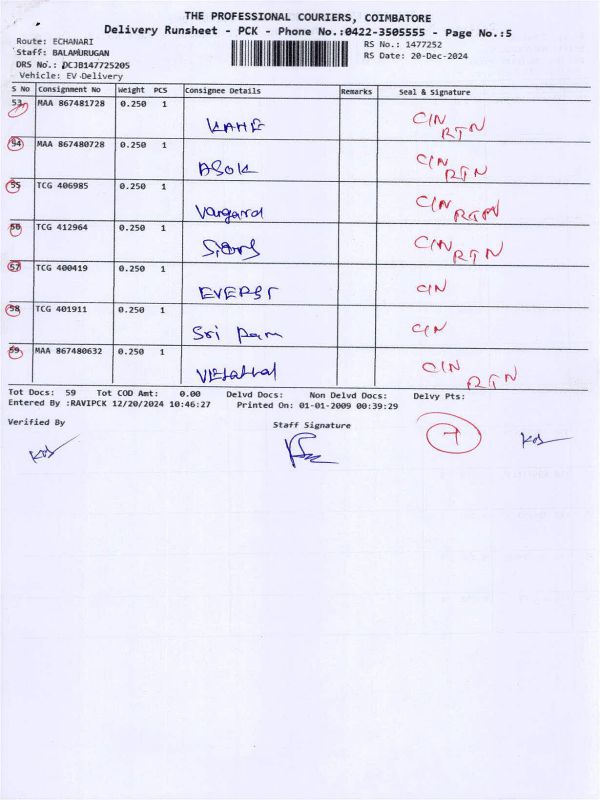 THE PROFESSIONAL COURIERS, COIMBATORE
Delivery Runsheet - PCK - Phone No.:0422-3505555 - Page No.:5
Route: ECHANARI
RS No.: 1477252
Staff: BALAMURUGAN
RS Date: 20-Dec-2024
DRS No.: DCJB147725205
Vehicle: EV Delivery
S No Consignment No Weight PCS Consignee Details Remarks Seal & Signature
53 MAA 867481728 0.250 1 KAHE C/N RTN
54 MAA 867480728 0.250 1 ASOK C/N RTN
55 TCG 406985 0.250 1 C/N RTN
56 TCG 412964 0.250 1 C/N RTN
57 TCG 400419 0.250 1 EVERST C/N
58 TCG 401911 0.250 1 Sri Ram C/N
59 MAA 867480632 0.250 1 C/N RTN
Tot Docs: 59 Tot COD Amt: 0.00 Delvd Docs: Non Delvd Docs: Delvy Pts:
Entered By :RAVIPCK 12/20/2024 10:46:27 Printed On: 01-01-2009 00:39:29
Verified By Staff Signature
7